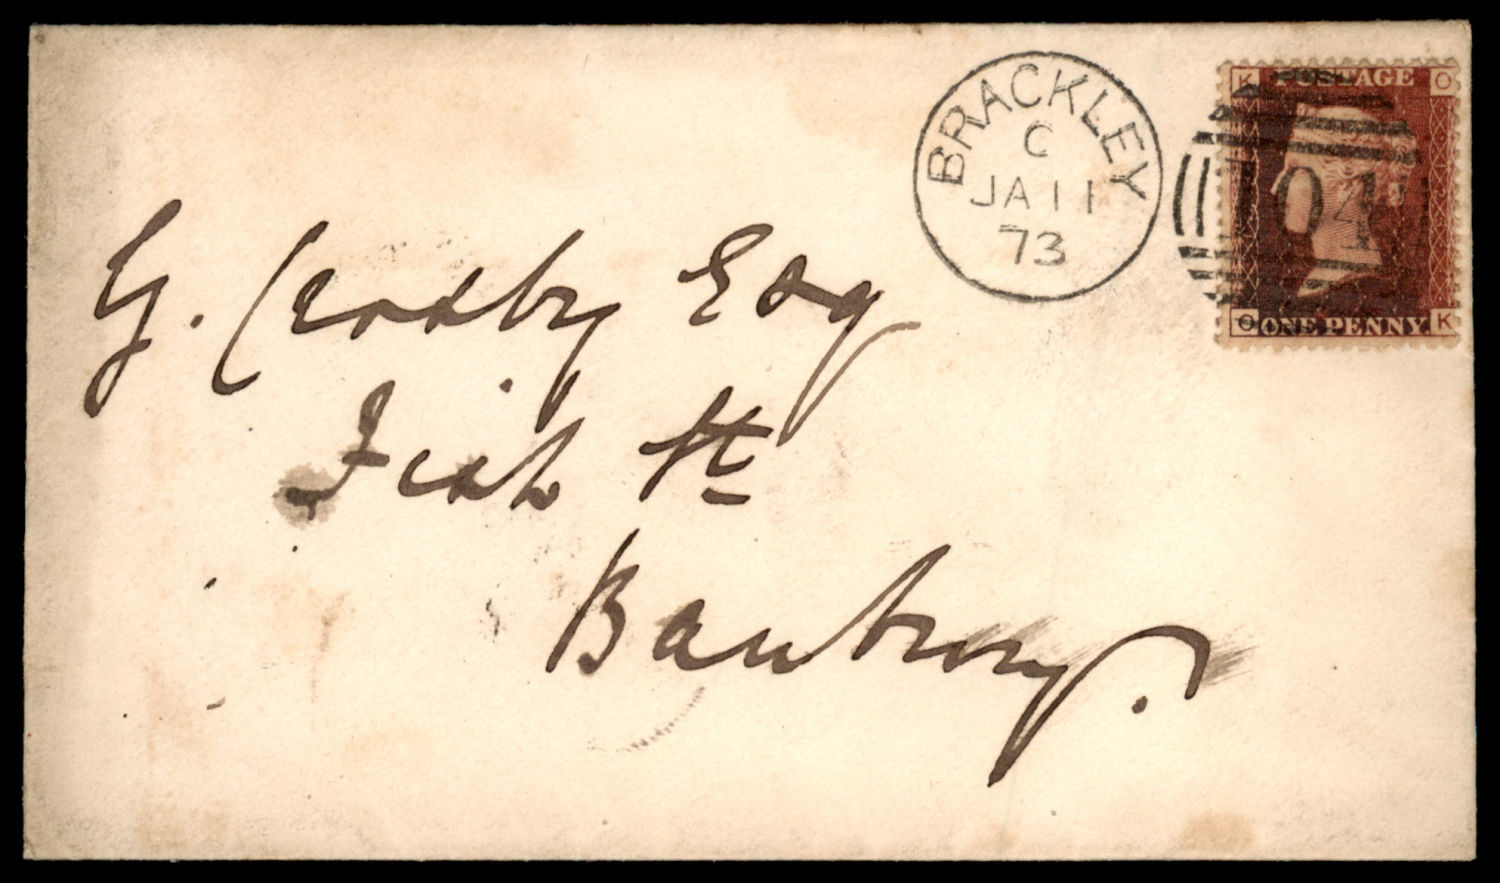 BRACKLEY
C
JA 11
73
K POSTAGE O
104
O ONE PENNY K
G. Crosby Esq
Fish St
Banbury.